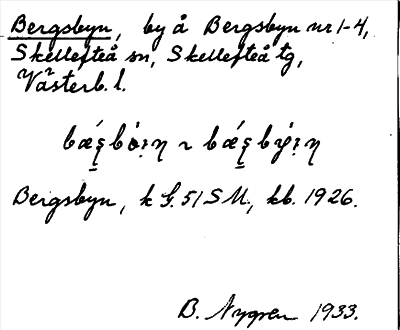 Bergsbyn, by å Bergsbyn nr 1-4,
Skellefteå sn, Skellefteå tg,
Västerb. l.
Bergsbyn, k G. 51 SM., kb. 1926.
B. Nygren 1933.